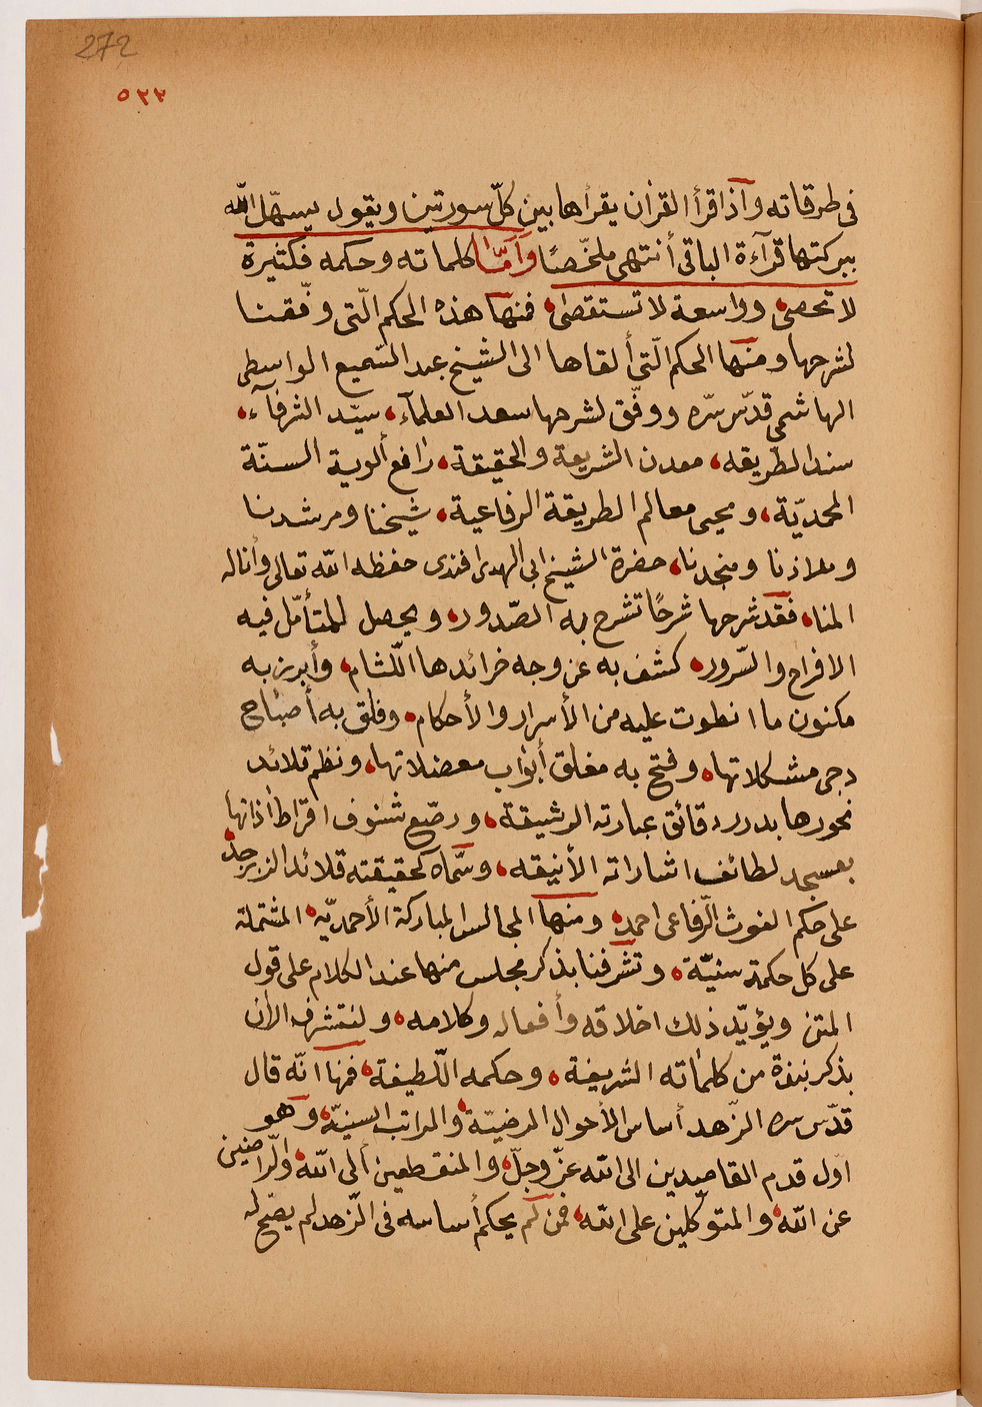 272
٥٣٣
فى طرقاته وآذا قرأ القرأن يقرأها بين كلّ سورتين ويقول يسهّل الله
ببركتها قرآءة الباقى أنتهى ملخّصًا وأمّا كلماته وحكمه فكثيرة
لا تحصى، وواسعة لا تستقصى، فمنها هذه الحكم الّتى وفّقنا
لشرحها ومنها الحكم الّتى ألقاها الى الشيخ عبد السّميع الواسطى
الهاشمى قدّس سرّه ووفّق لشرحها سعد العلمآء، سيّد الشرفآء،
سند الطّريقه، معدن الشريعة والحقيقة، رافع ألوية السنّة
المحمديّة، ومحيى معالم الطريقة الرفاعية، شيخنا ومرشدنا
وملاذنا ومنجدنا، حضرة الشيخ ابى الهدى افندى حفظه الله تعالى وأناله
المنا، فقد شرحها شرحًا تشرح به الصّدور، ويحصل للمتأمّل فيه
الافراح والسّرور، كشف به عن وجه خرائدها اللّثام، وأبرز به
مكنون ما انطوت عليه من الأسرار والأحكام، وفلق به أصباح
دجى مشكلاتها، وفتح به مغلق أبواب معضلاتها، ونظم قلائد
نحورها بدرر دقائق عبارته الرشيقة، ورصّع شنوف اقراط أذانها
بعسجد لطائف اشاراته الأنيقه، وسمّاه كحقيقته قلائد الزبرجد،
على حكم الغوث الرّفاعى احمد، ومنها المجالس المباركة الأحمديّه، المشتملة
على كل حكمة سنيّة، وتشرفنا بذكر مجلس منها عند الكلام على قول
المتن ويؤيّد ذلك اخلاقه وأفعاله وكلامه، ولنتشرف الأن
بذكر نبذة من كلماته الشريفة، وحكمه اللّطيفة، فمنها انّه قال
قدّس سره الزّهد أساس الأحوال المرضيّة، والمراتب السنيّة، وهو
اوّل قدم القاصدين الى الله عزّ وجلّ، والمنقطعين ألى الله، والرّاضين
عن الله، والمتوكّلين على الله، فمن لم يحكم أساسه فى الزّهد لم يصّح له